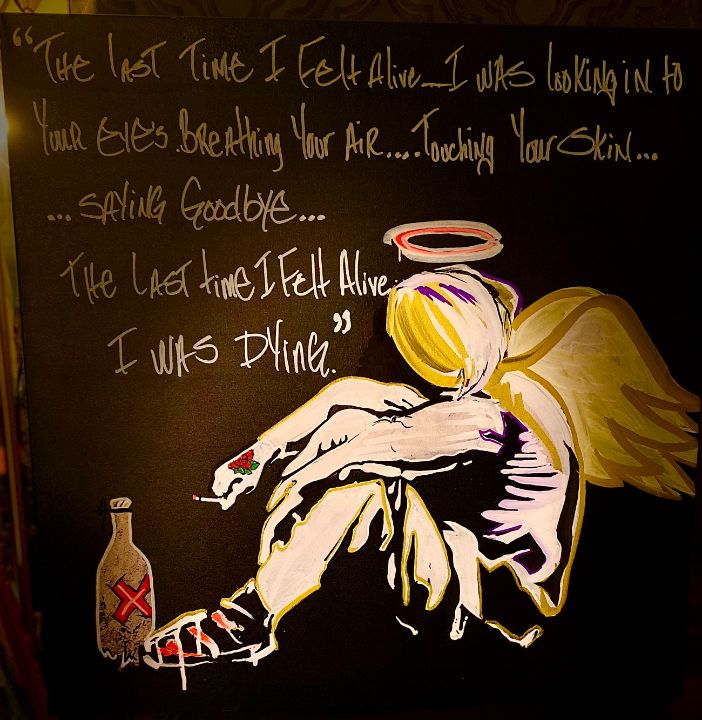 “The last Time I Felt Alive_I was looking in to
Your Eye's. Breathing Your Air....Touching Your Skin...
...saying Goodbye...
The Last time I Felt Alive.
I was Dying.”
X